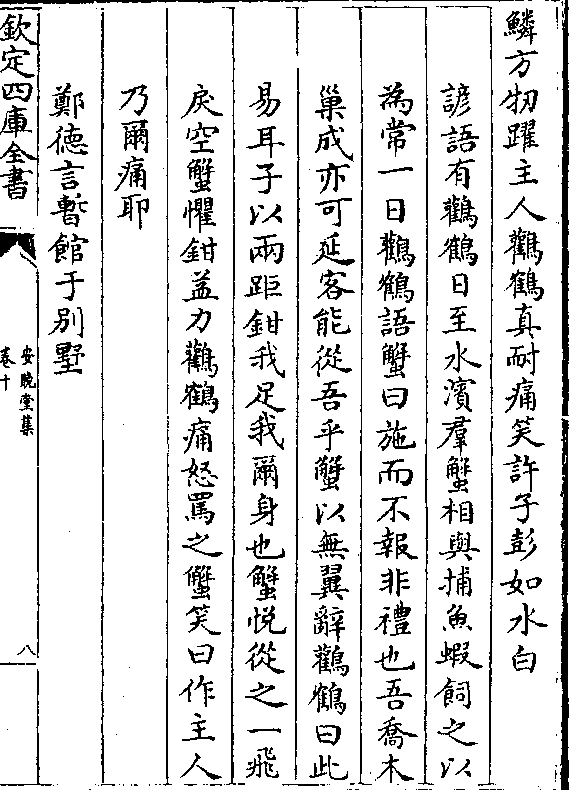 鱗方牣躍主人鸛鶴真耐痛笑許子彭如水白
諺語有鸛鶴日至水濱羣蟹相與捕魚蝦飼之以
為常一日鸛鶴語蟹曰施而不報非禮也吾喬木
巢成亦可延客能從吾乎蟹以無翼辭鸛鶴曰此
易耳子以兩距鉗我足我爾身也蟹悅從之一飛
戾空蟹懼鉗益力鸛鶴痛怒罵之蟹笑曰作主人
乃爾痛耶
鄭德言暫館于別墅
欽定四庫全書
安晚堂集
卷十
八